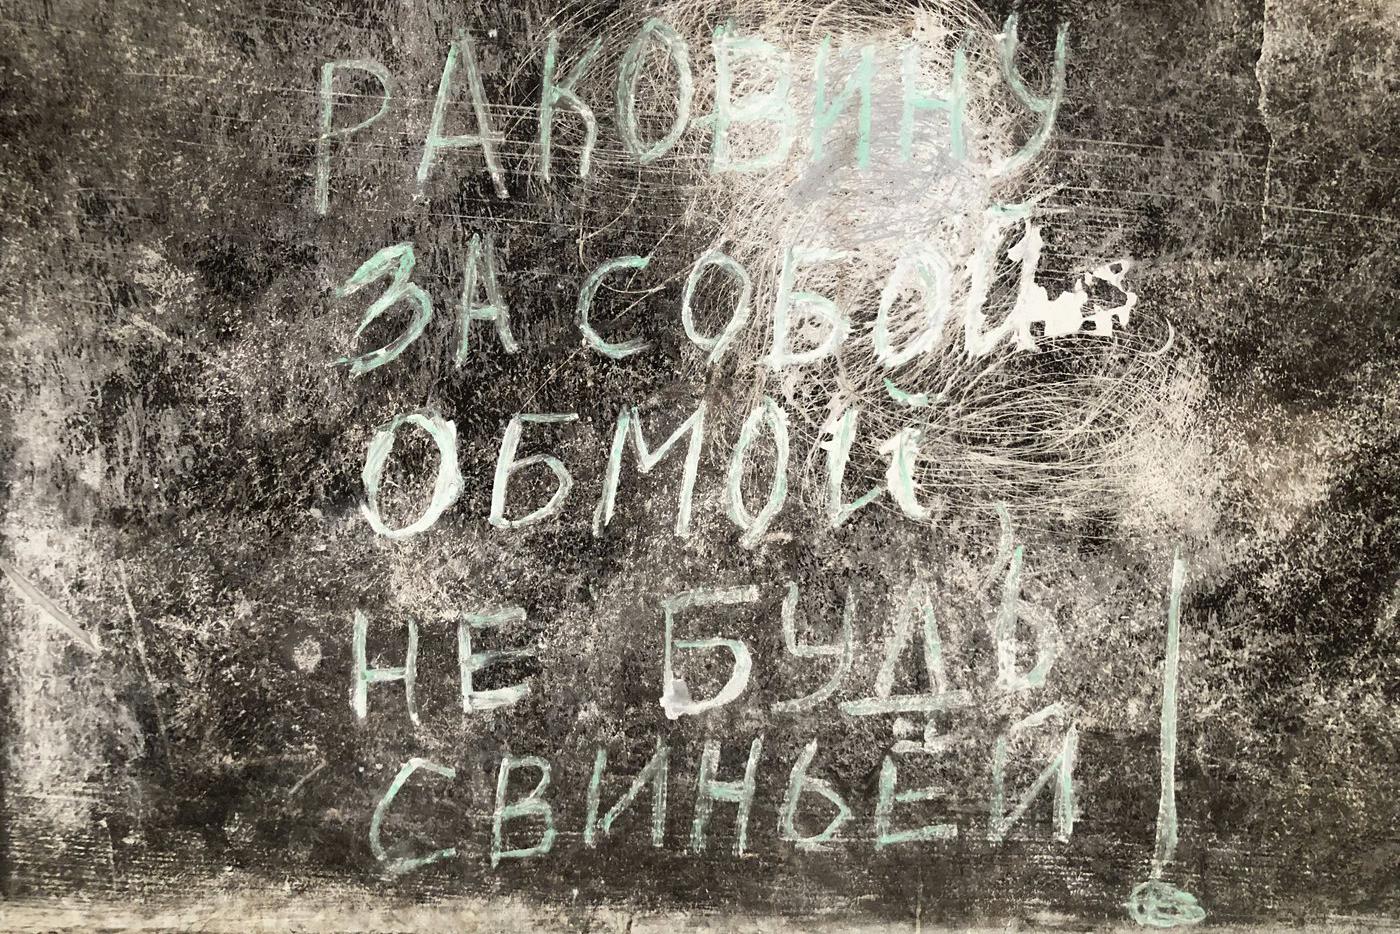 РАКОВИНУ
ЗА СОБОЙ
ОБМОЙ
НЕ БУДЬ
СВИНЬЁЙ!